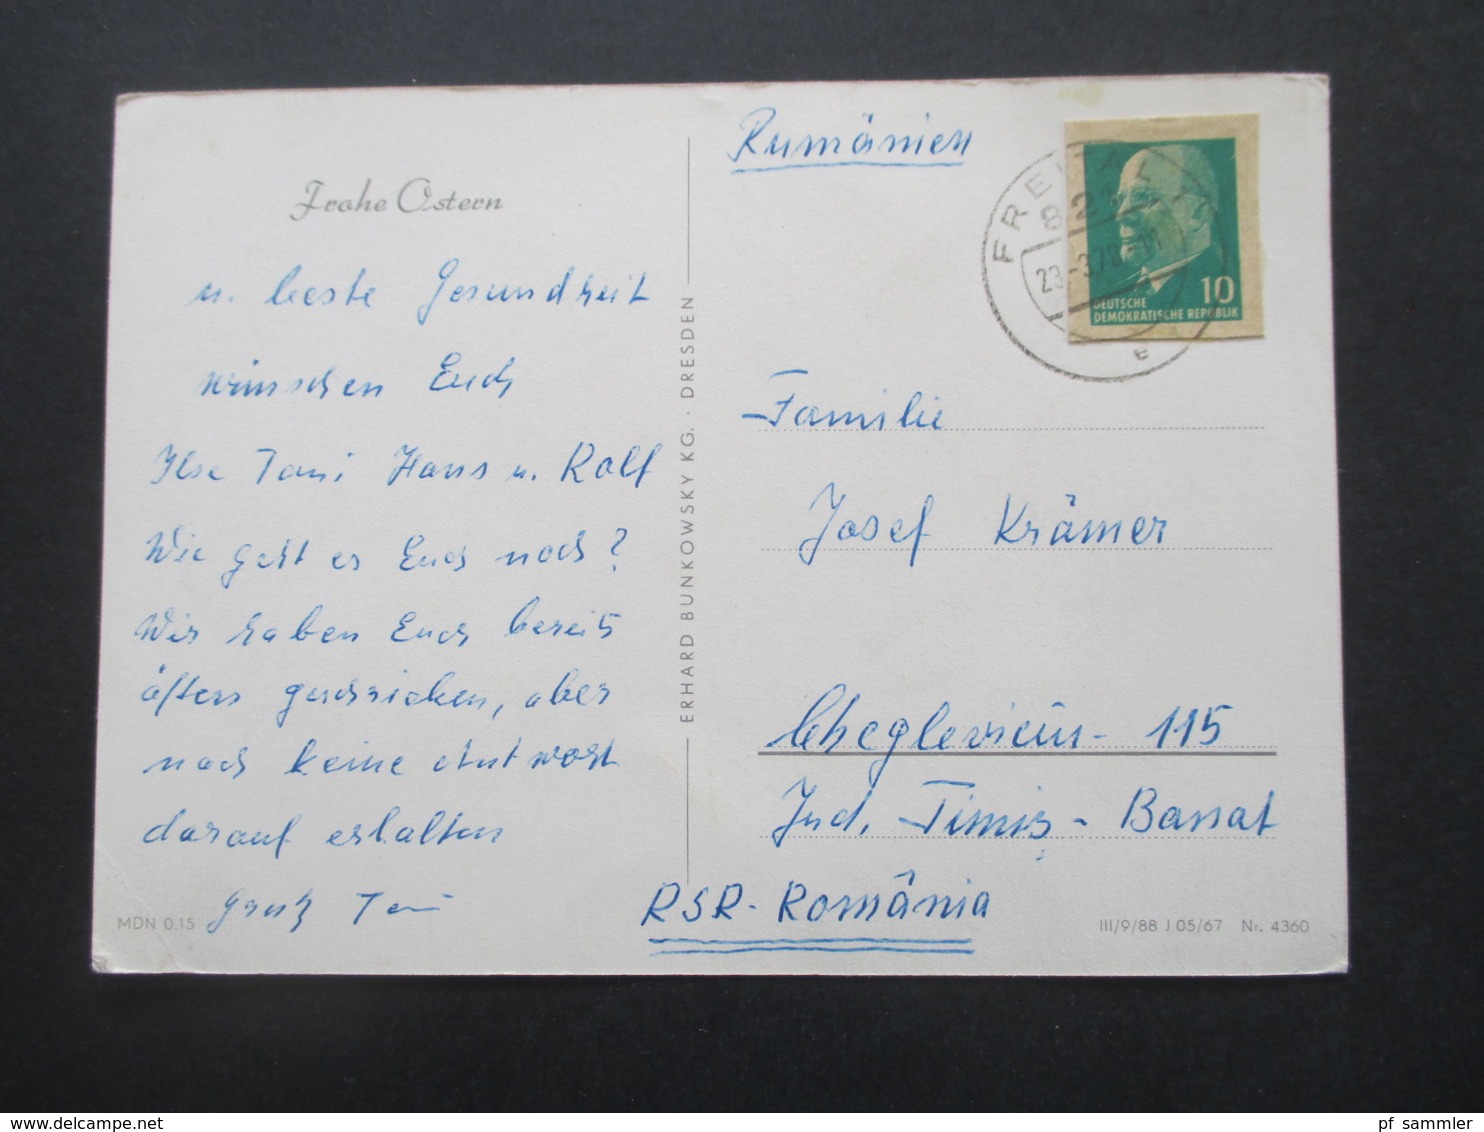 Frohe Ostern
u. beste Gesundheit
wünschen Euch
Ilse Toni Hans u. Rolf
Wie geht es Euch noch?
Wir haben Euch bereits
öfters geschrieben, aber
noch keine Antwort
darauf erhalten
Gruß Toni
MDN 0.15
ERHARD BUNKOWSKY KG. · DRESDEN
Rumänien
FREITAL 1
23.-3.70
e
10
DEUTSCHE
DEMOKRATISCHE REPUBLIK
Familie
Josef Krämer
Cheglevicin - 115
Jud. Timiș - Banat
RSR - România
III/9/88 J 05/67 Nr. 4360
pf_sammler